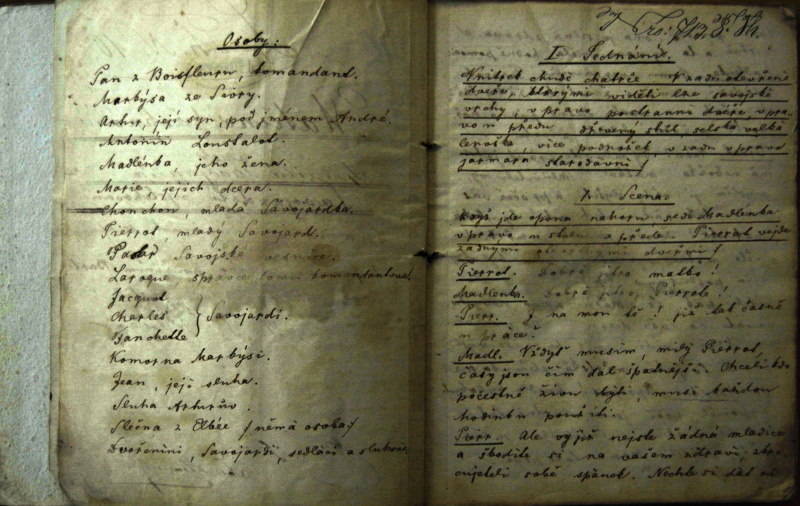 Osoby:
Pan z Boisfleuru, komandant.
Markýsa ze Sivry.
Artur, její syn, pod jménem André.
Antonín Loustalot.
Madlénka, jeho žena.
Marie, jejich dcera.
Chonchon, mladá Savojardka.
Pierrot, mladý Savojard.
Pastýř Savojské vesnice.
Laroque správce komandantův.
Jacquot
Charles } Savojardi.
Fanchette
Komorna Markýsi.
Jean, její sluha.
Sluha Arturův.
Slečna z Elbée / němá osoba /
Dvořeníni, Savojardi, sedláci a sluhové.
I. Jednání.
Vnitřek chudé chatrče. V zadu otevřené
dveře, kterými viděti lze savojské
vrchy, v pravo postranní dveře, v pra-
vo v předu dřevěný stůl, selská velká
lenoška, více podnožek, v zadu v pravo
jarmara starodávní /
1. Scena.
Když jde opona nahoru sedí Madlénka
v pravo u stolu a přede. Pierrot vejde
zadnými otevřenými dveřmi /
Pierrot. Dobré jitro matko!
Madlénka. Dobré jitro, Pierrote!
Pierr. / na mou tě! již tak časně
u práce?
Madl. Vždyť musím, milý Pierrot,
časy jsou čím dál špatnější. Chceli kdo
počestně živ býti, musí každou
hodinku použíti.
Pierr. Ale vy již nejste žádná mladice
a škodíte si na vašem zdraví, zkra-
cujeteli sobě spánek. Nechte si dát